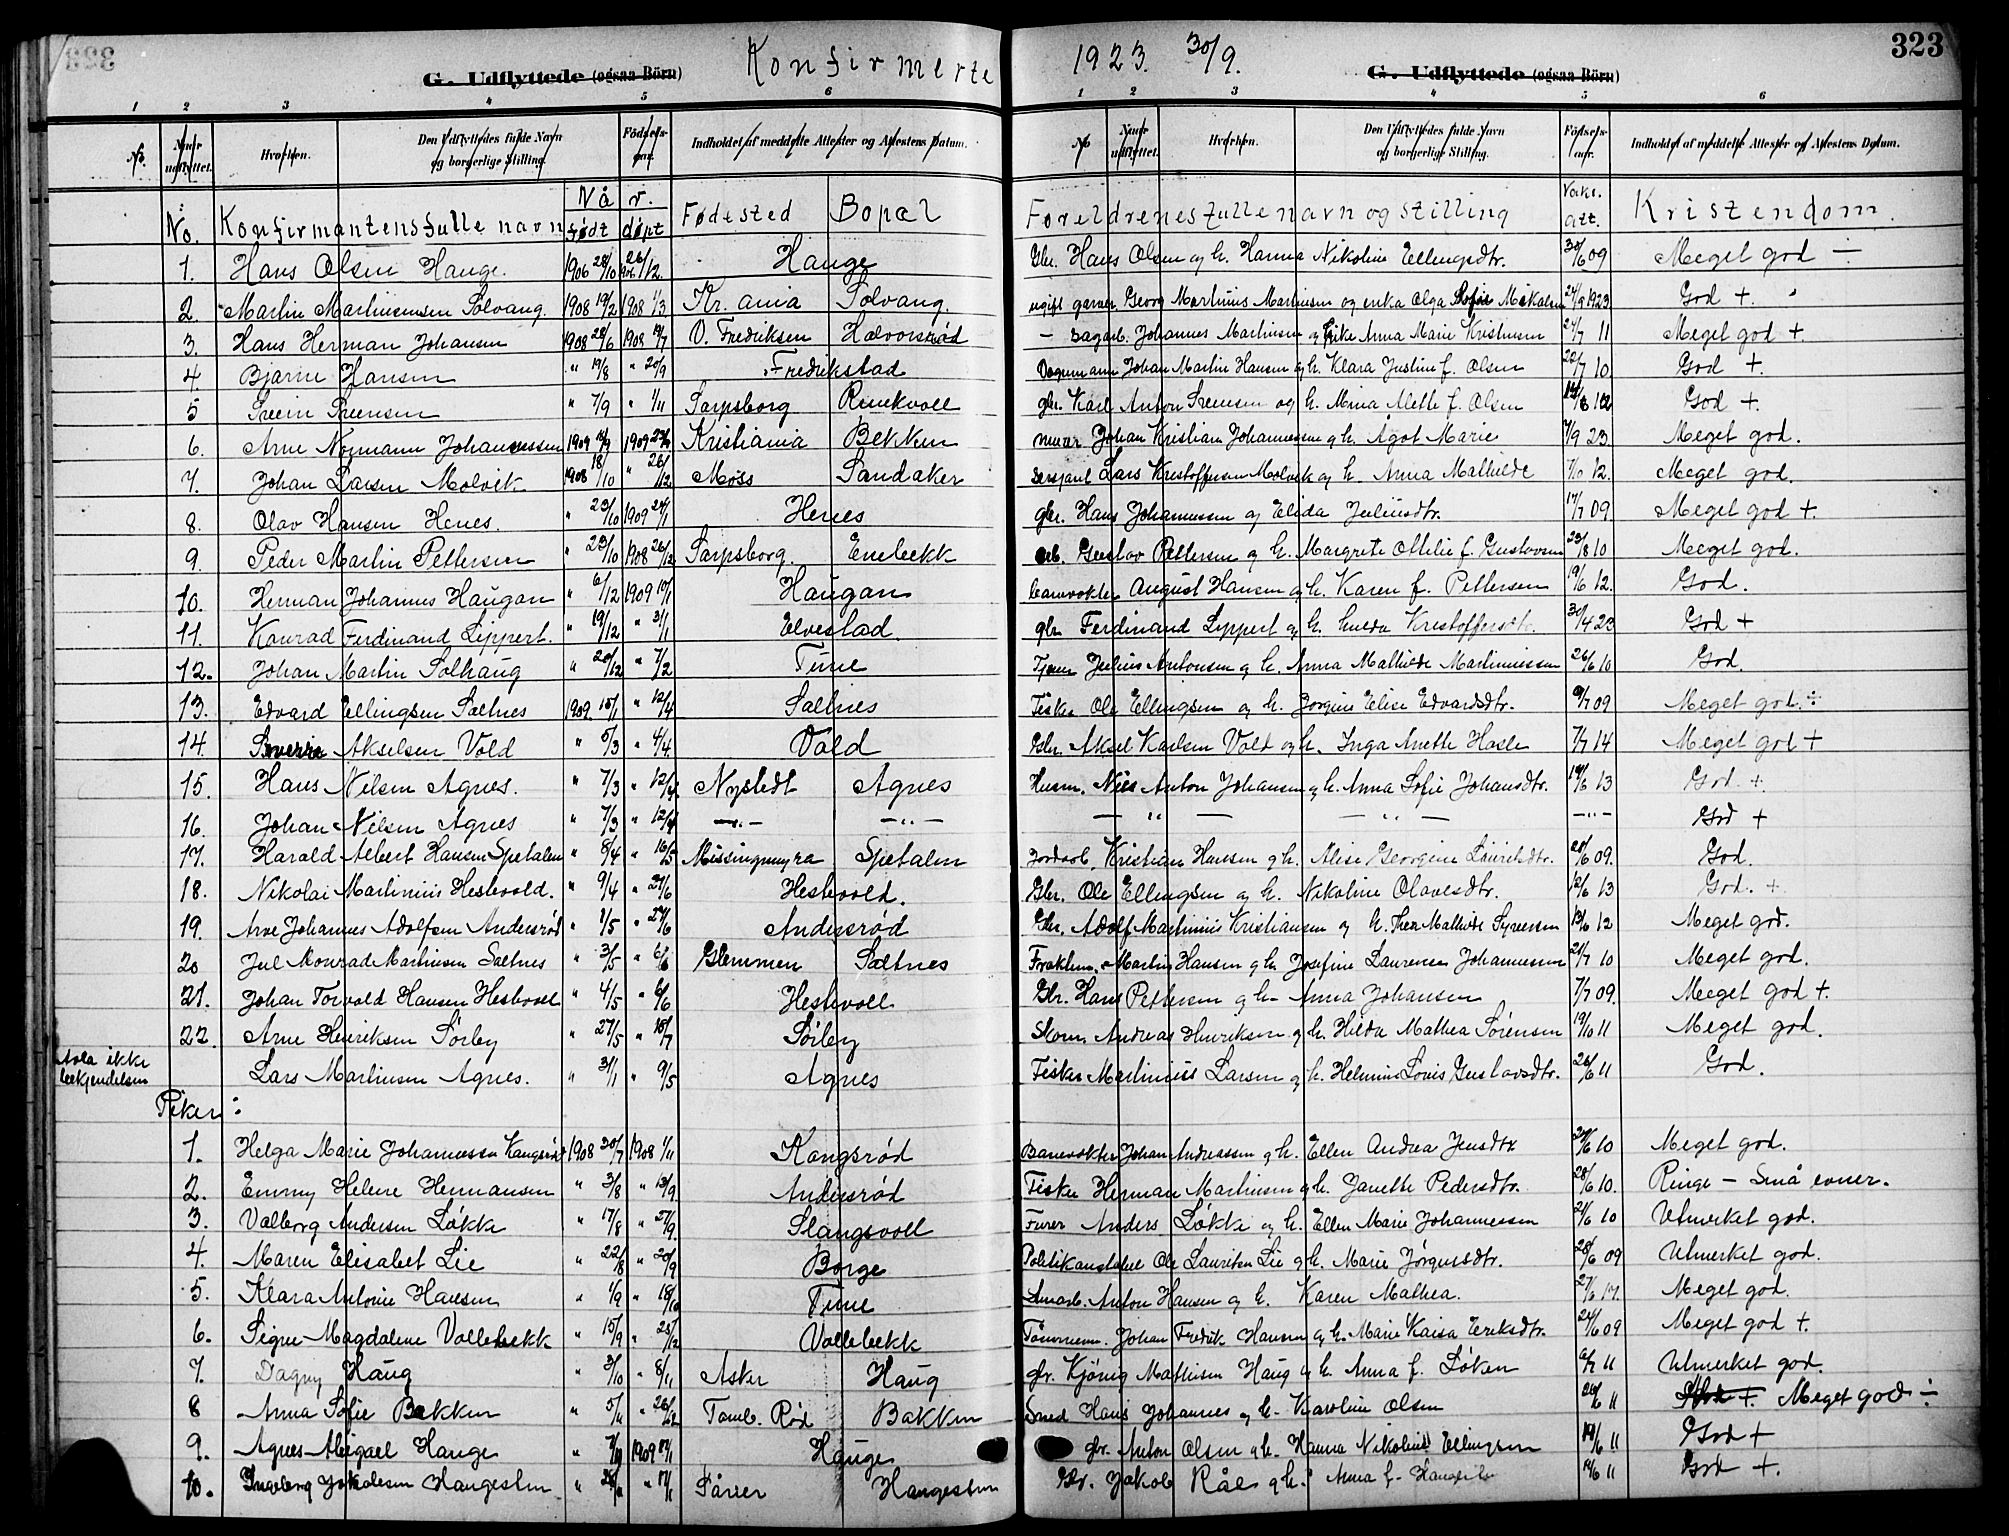 323
G. Udflyttede (ogsaa Börn) Konfirmerte 1923. 30/9. G. Udflyttede (ogsaa Börn)
1 2 3 4 5 6 1 2 3 4 5 6
No. Naar udflyttet. Hvorhen. Den Udflyttedes fulde Navn og borgerlige Stilling. Fødsels-aar. Indholdet af meddelte Attester og Attestens Datum. No Naar udflyttet. Hvorhen. Den Udflyttedes fulde Navn og borgerlige Stilling. Fødsels-aar. Indholdet af meddelte Attester og Attestens Datum.
No. Konfirmantens fulle navn Når født døpt Fødested Bopæl Foreldrenes fulle navn og stilling Vaks. att. Kristendom.
1. Hans Olsen Hauge. 1906 28/10 26/12 Hauge Gbr. Hans Olsen og h. Hanna Nikoline Ellingsdtr. 30/6 09 Meget god ÷
2. Martin Martinsen Solvang. 1908 19/2 1908 1/3 Kr.ania Solvang. ugift garver Georg Martinius Martinsen og enke Olga Sofie Mikalsen 24/9 1923 God +
3. Hans Herman Johansen 1908 28/6 1908 19/7 O. Fredriksen Halvorsrød — Sagarb. Johannes Martinsen og Anna Marie Kristensen 24/7 11 Meget god +
4. Bjarne Hansen " 19/8 " 20/9 Fredrikstad Vognmann Johan Martin Hansen og h. Klara Justine f. Olsen 22/7 10 God +.
5 Svein Svensen " 7/9 " 1/11 Sarpsborg Rinekvoll gbr. Karl Anton Svensen og h. Mina Alette f. Olsen God +.
6. Arne Normann Johannessen 1909 1909 Kristiania Bekken murer Johan Kristian Johannessen og h. Ågot Marie 7/9 23 Meget god.
7. Johan Larsen Molvik 1908 18/10 " 26/12 Moss Sandaker Sersjant Lars Kristoffersen Molvik og h. Anna Mathilde 7/10 12. Meget god.
8. Olav Hansen Henes. " 23/10 1909 24/1 Henes gbr. Hans Johannessen og Elida Juliusdtr. 17/7 09. Meget god +.
9. Peder Martin Pettersen " 23/10 1908 26/12 Sarpsborg. Enebekk arb. Gustav Pettersen og h. Margrete Ottilie f. Gustavsen 23/8 10 Meget god.
10. Herman Johannes Haugan " 6/12 1909 10/1 Haugan banevokter August Hansen og h. Karen f. Pettersen 19/6 12. God.
11. Konrad Ferdinand Lippert. " 19/12 " 31/1 Elvestad. gbr Ferdinand Lippert og h. Hulda Kristoffersdtr. 30/4 23 God +
12. Johan Martin Solhaug " 20/12 " 7/2 Tune Julius Antonsen og h. Anna Mathilde Martiniussen 26/6 10 God.
13. Edvard Ellingsen Saltnes 1909. 15/1 " 12/4 Saltnes Fisker Ole Ellingsen og h. Jorgine Elise Edvardsdtr. 9/7 09 Meget god. ÷
14. Sverre Akselsen Vold " 5/3 " 4/4 Vold Gbr. Aksel Karlsen Vold og h. Inga Anette Hasle 7/7 14 Meget god +
15. Hans Nilsen Agnes. " 7/3 " 12/4 Nystedt Agnes Husm. Nils Anton Johansen og h. Anna Sofie Johansdtr. 19/6 13 God +
16. Johan Nilsen Agnes " 7/3 " 12/4 —"— —"— — " — — " — —"— God +
17. Harald Albert Hansen Spetalen " 8/4 " 16/5 Missingmyra Spetalen Jordarb. Kristian Hansen og h. Alise Georgine Lauritsdtr. 28/6 09. God.
18. Nikolai Martinius Hestvold. " 9/4 " 27/6 Hestvold. Gbr. Ole Ellingsen og h. Nikoline Olavesdtr. 12/6 13 God. +
19. Arve Johannes Adolfsen Andersrød " 1/5 " 27/6 Andersrød Gbr. Adolf Martinius Kristiansen og h. Thea Mathilde Syversen 12 Meget god.
20 Jul Konrad Martinsen Saltnes " 3/5 " 6/6 Glemmen Saltnes Martin Hansen og h. Josefine Laurense Johannessen 21/7 10 Meget god.
21. Johan Torvald Hansen Hestvoll " 4/5 " 6/6 Hestvoll Gbr. Hans Pettersen og h. Anna Johansen 7/7 09. Meget god +.
22. Arne Henriksen Sørby " 27/5 " 18/7 Sørby Skom. Andreas Henriksen og h. Hilda Mathea Sørensen 19/10 11 Meget god.
Avla ikke bekjendelsen Lars Martinsen Agnes. " 31/1 " 9/5 Agnes Fisker Martinius Larsen og h. Helmine Lovis Gustavsdtr. 26/6 11 God.
Piker:
1. Helga Marie Johannessen Kangsrød 1908 20/7 1908 1/11 Kangsrød Banevokter Johan Andreassen og h. Ellen Andrea Jensdtr 10 Meget god.
2. Emmy Helene Hermansen " 3/8 " 13/9 Andersrød Fisker Herman Martinsen og h. Janette Pedersdtr. 28/6 10. Ringe – Små evner.
3. Valborg Andersen Løkke " 17/8 " 27/9. Slangsvoll Furer Anders Løkke og h. Ellen Marie Johannessen 21/6 10 Utmerket god.
4. Maren Elisabet Lie " 22/8 " 20/9 Borge Politikonstabel Ole Lauritsen Lie og h. Marie Jørgensdtr. 28/6 09 Utmerket god.
5. Klara Antonie Hansen " 1/9 " 18/10 Tune Anton Hansen og h. Karen Mathea. 27/6 17. Meget god.
6. Signe Magdalene Vollebekk " 15/9 " 25/12 Vollebekk Tømmerm. Johan Fredrik Hansen og h. Marie Kaisa Eriksdtr. 24/6 09 Meget god +.
7. Dagny Haug " 3/10 " 8/11 Asker Haug gbr. Kjönig Mathisen Haug og h. Anna f. Løken 6/7 11 Utmerket god.
8 Anna Sofie Bakken " 5/11 " 26/12 Tomb. Rød Bakken Smed Hans Johannes og h. Karoline Olsen 11 God +. Meget god ÷
9. Agnes Abigael Hauge " 1909 17/1 Hauge gbr. Anton Olsen og h. Hanna Nikoline Ellingsen 19/6 11 God +
10. Ingeborg Jakobsen Haugesten " " 17/1 Såner Haugesten Gbr. Jakob Råel og h. Anna f. 19/6 11 God +.